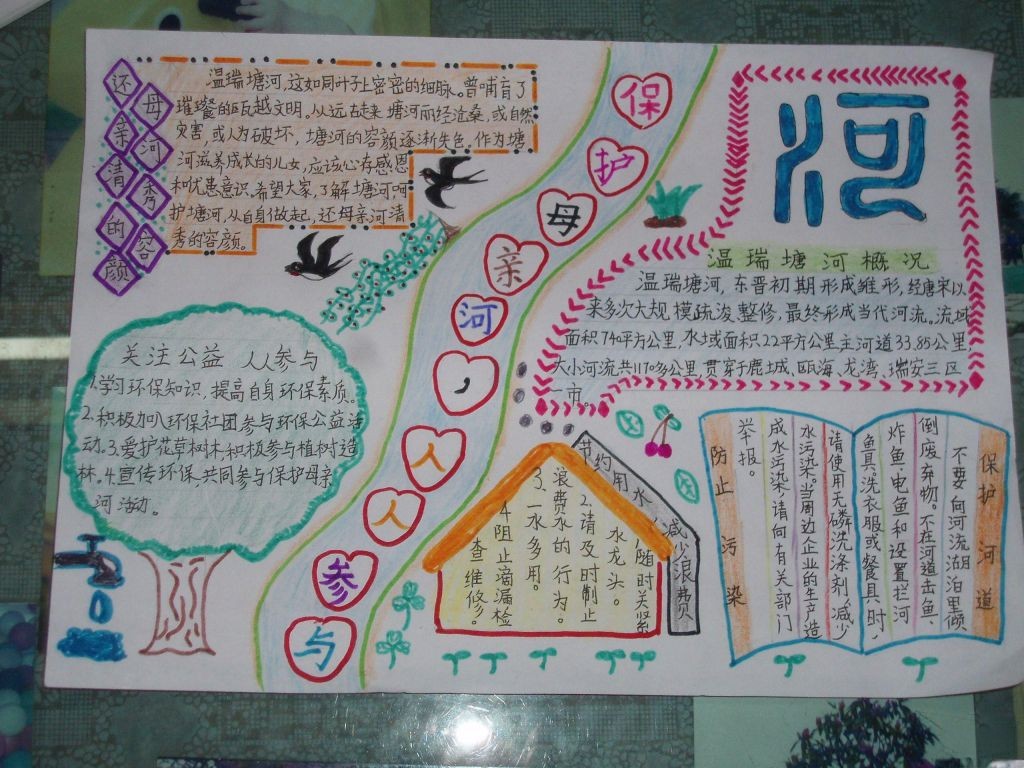 还母亲河清秀的容颜
温瑞塘河,这如同叶子上密密的细脉。曾哺育了
璀璨的瓯越文明。从远古走来,塘河历经沧桑,或自然
灾害,或人为破坏,塘河的容颜逐渐失色,作为塘
河滋养成长的儿女,应该心存感恩
和忧患意识。希望大家,了解塘河,呵
护塘河,从自身做起,还母亲河清
秀的容颜。
保护母亲河,人人参与
河
温瑞塘河概况
温瑞塘河,东晋初期形成雏形,经唐宋以
来多次大规模疏浚整修,最终形成当代河流。流域
面积740平方公里,水域面积22平方公里,主河道33.85公里,
大小河流共1170多公里,贯穿于鹿城、瓯海、龙湾、瑞安三区
一市。
关注公益 人人参与
1.学习环保知识,提高自身环保素质。
2.积极加入环保社团参与环保公益活
动。3.爱护花草树林和积极参与植树造
林。4.宣传环保,共同参与保护母亲
河活动。
节约用水 减少浪费
1.随时关紧
水龙头。
2.请及时制止
浪费水的行为。
3.一水多用。
4.阻止滴漏检
查维修。
保护河道
不要向河流湖泊里倾
倒废弃物。不在河道击鱼、
炸鱼、电鱼和设置拦河
鱼具。洗衣服或餐具时,
请使用无磷洗涤剂,减少
水污染。当周边企业的生产造
成水污染,请向有关部门
举报。
防止污染